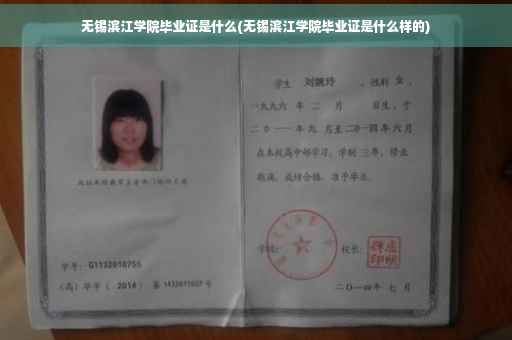 无锡滨江学院毕业证是什么(无锡滨江学院毕业证是什么样的)
学生 刘婉玲 ，性别 女 ，
一九九六 年 二 月 日生，于
二〇一一年九 月至二〇一四年六月
在本校高中部学习，学制 三年，修业
期满，成绩合格，准予毕业。
学校： 校长：
学号： G1132010755
(高) 毕字 ( 2014 ) 第 1432011027 号
二〇一四年 七 月